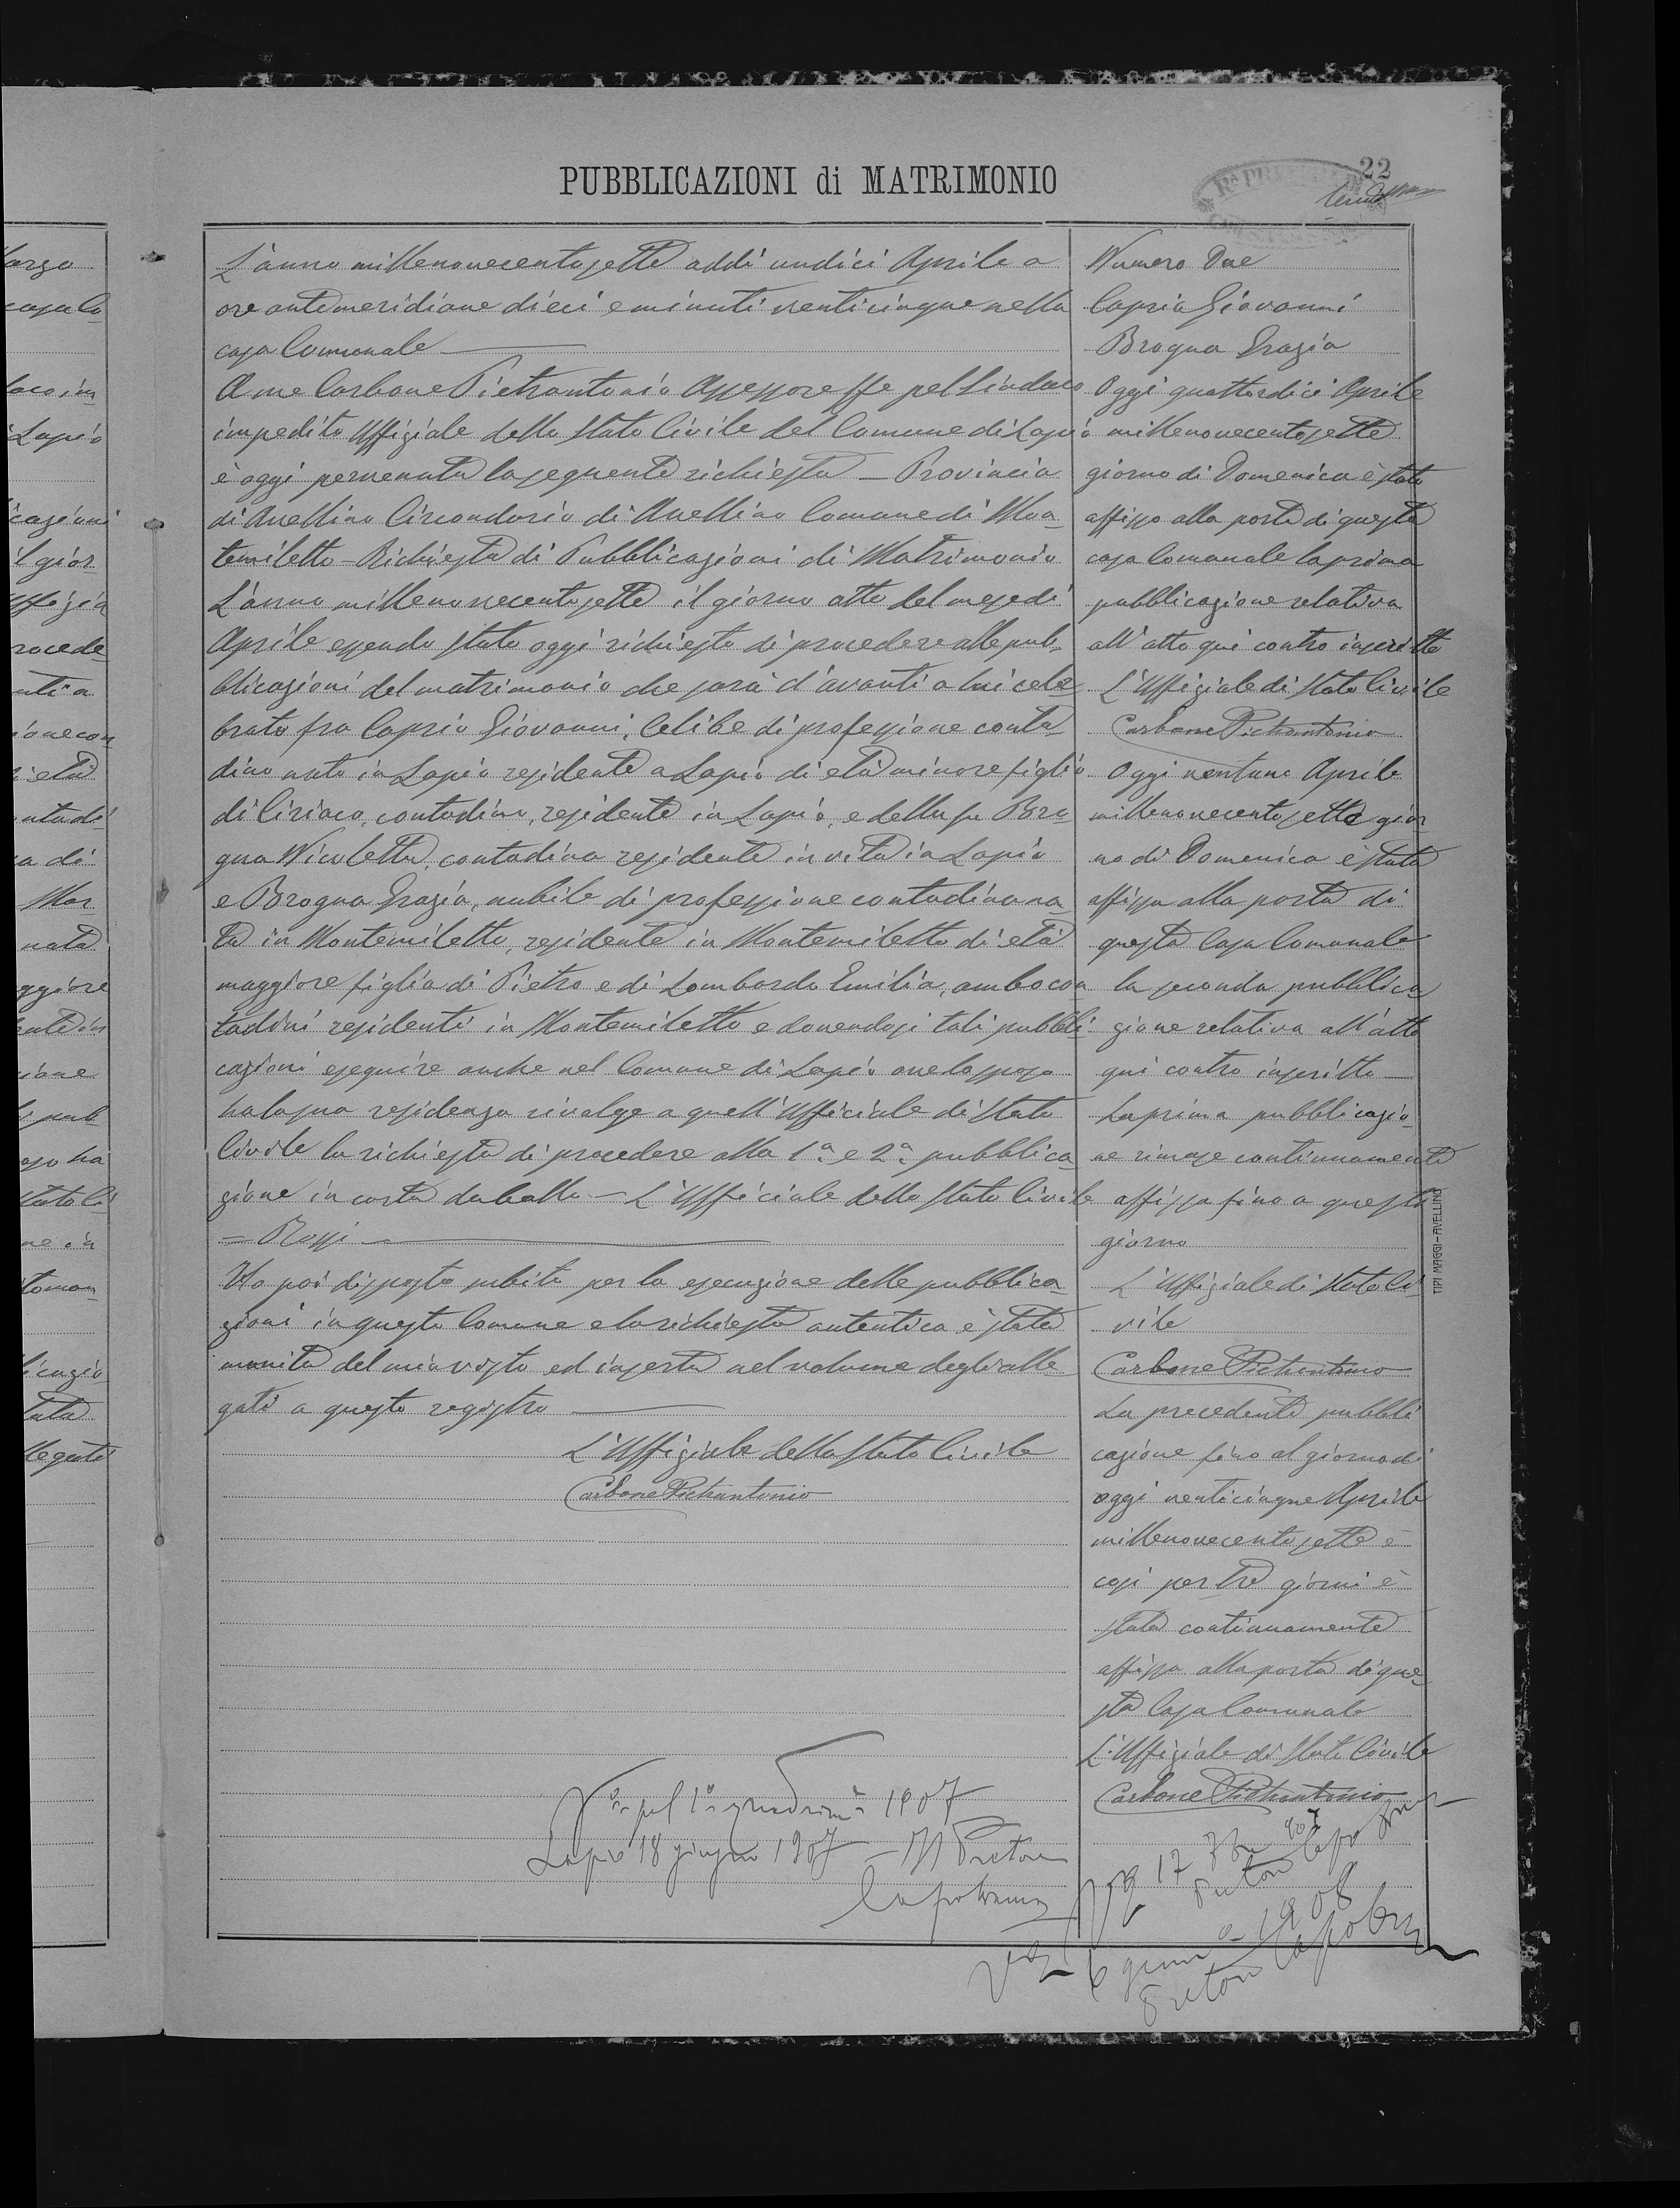 PUBBLICAZIONI di MATRIMONIO
22
L'anno millenovecentosette addì undici Aprile a
ore antemeridiane dieci e minuti venticinque nella
casa Comunale
A me Carbone Pietrantonio Assessore ffe pel Sindaco
impedito Uffiziale dello Stato Civile del Comune di Lapio
è oggi pervenuta la seguente richiesta – Provincia
di Avellino Circondario di Avellino Comune di Mon-
temiletto – Richiesta di Pubblicazioni di Matrimonio
L'anno millenovecentosette il giorno otto del mese di
Aprile essendo stato oggi richiesto di procedere alle pub-
blicazioni del matrimonio che sarà d'avanti a lui cele-
brato fra Caprio Giovanni, Celibe di professione conta-
dino nato in Lapio residente a Lapio di età minore figlio
di Ciriaco, contadino, residente in Lapio, e della fu Bro-
gna Nicoletta, contadina residente in vita in Lapio
e Brogna Grazia, nubile di professione contadina na-
ta in Montemiletto, residente in Montemiletto di età
maggiore figlia di Pietro e di Lombardo Emilia, ambo con
tadini residenti in Montemiletto e dovendosi tali pubbli
cazioni eseguire anche nel Comune di Lapio ove lo sposo
ha la sua residenza rivolge a quell'Ufficiale di Stato
Civile la richiesta di procedere alla 1ª e 2ª pubblica-
zione in carta da bollo – L'Ufficiale dello Stato Civile
= Rossi
Ho poi disposto subito per la esecuzione delle pubblica-
zioni in questo Comune e la richiesta autentica è stata
munita del mio visto ed inserta nel volume degli alle-
gati a questo registro
L'Uffiziale dello Stato Civile
Carbone Pietrantonio
Lapio 18 giugno 1907 – Il Pretore
Numero Due
Caprio Giovanni
Brogna Grazia
Oggi quattordici Aprile
millenovecentosette
giorno di Domenica è stata
affissa alla porta di questa
casa Comunale la prima
pubblicazione relativa
all'atto qui contro inscritto
L'Uffiziale di Stato Civile
Carbone Pietrantonio
Oggi ventuno Aprile
millenovecentosette gior
no di Domenica è stata
affissa alla porta di
questa Casa Comunale
la seconda pubblica
zione relativa all'atto
qui contro inscritto
La prima pubblicazio-
ne rimase continuamente
affissa fino a questo
giorno
L'Uffiziale di Stato Ci-
vile
Carbone Pietrantonio
La precedente pubbli
cazione fino al giorno di
oggi venticinque Aprile
millenovecentosette è
cosi per tre giorni è
stata continuamente
affissa alla porta di que-
sta Casa Comunale
L'Uffiziale di Stato Civile
Carbone Pietrantonio
TIPI MAGGI-AVELLINO